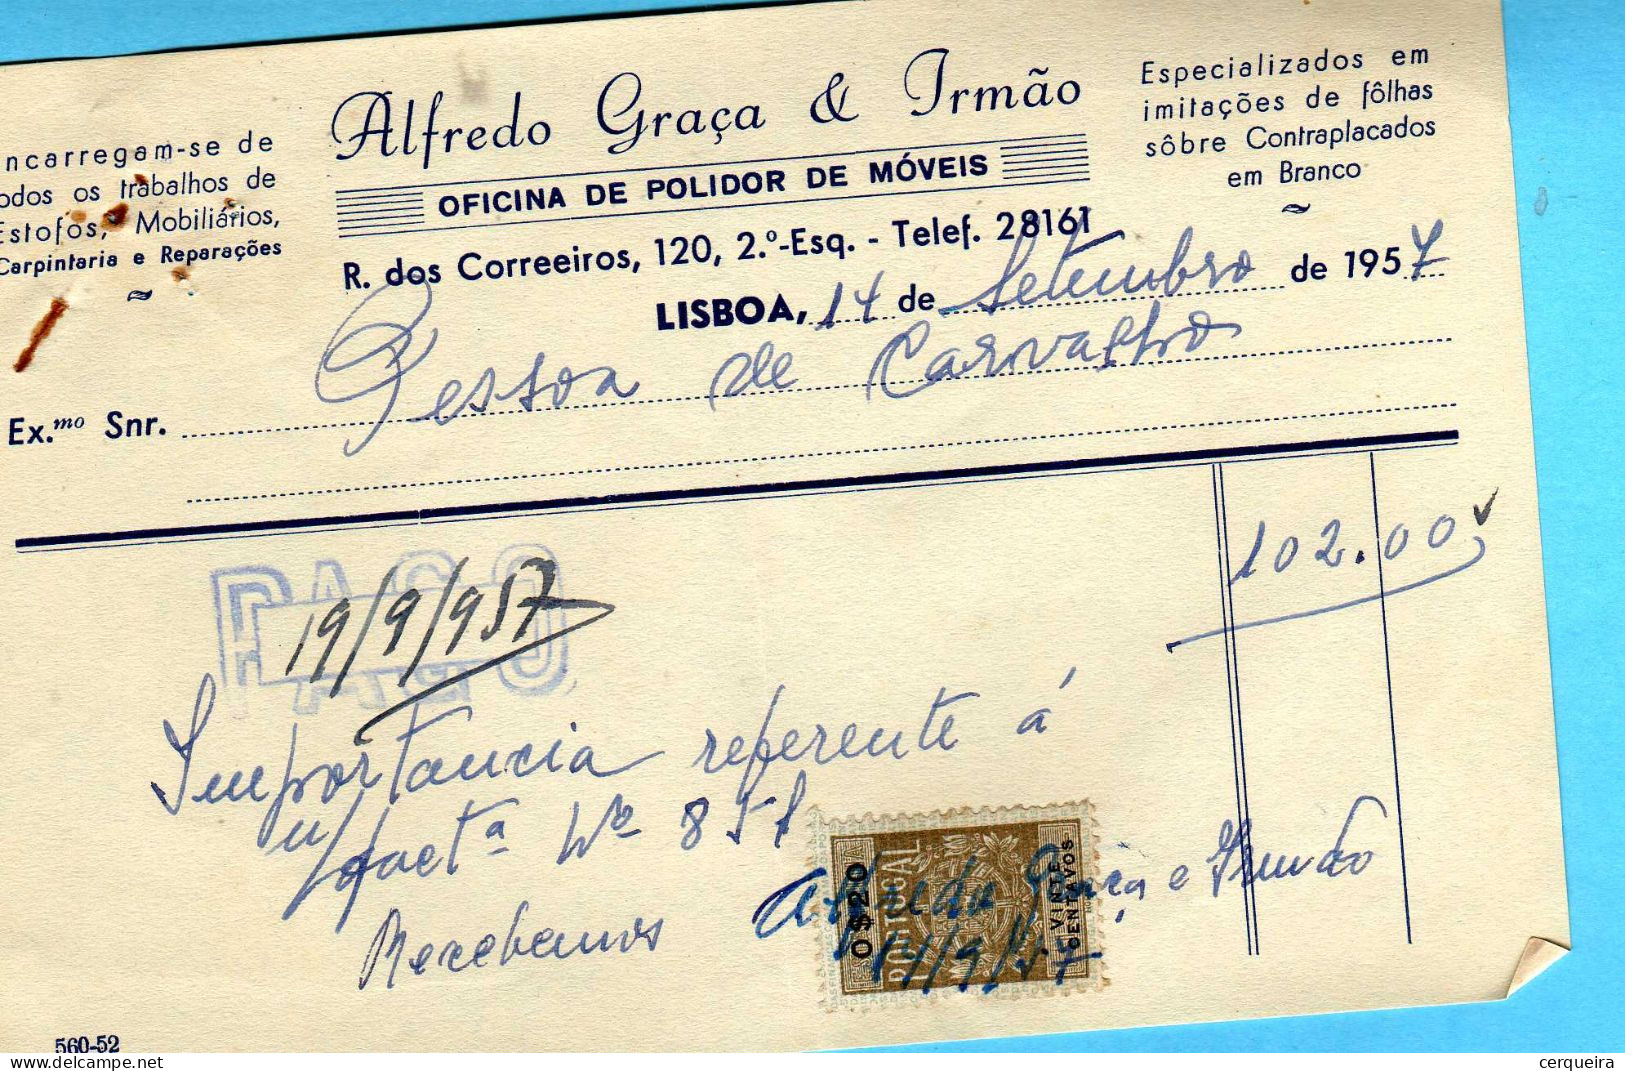 Alfredo Graça & Irmão
OFICINA DE POLIDOR DE MÓVEIS
R. dos Correeiros, 120, 2.º-Esq. - Telef. 28161
ncarregam-se de
odos os trabalhos de
Estofos, Mobiliários,
Carpintaria e Reparações
Especializados em
imitações de fôlhas
sôbre Contraplacados
em Branco
LISBOA, 14 de Setembro de 1957
Ex.mo Snr. Pessoa de Carvalho
102.00
PAGO
19/9/957
Importancia referente á
n/ fact.ª Nº 851
Recebemos
Alfredo Graça e Irmão
14/9/57
0$20
PORTUGAL
VINTE
CENTAVOS
560-52
cerqueira